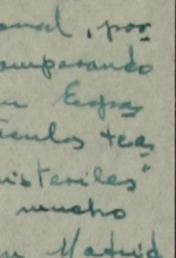 onal, por
omparando
en Espa
ículos tea
nisteriles"
mucho
en Madrid